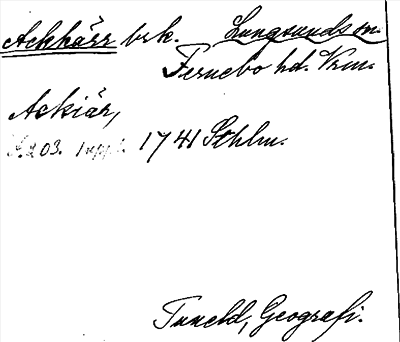 Ackkärr brk. Lungsunds sn.
Fernebo hd. Vrm.
Ackiär,
S. 203. 1741 Sthlm.
Tuneld, Geografi.